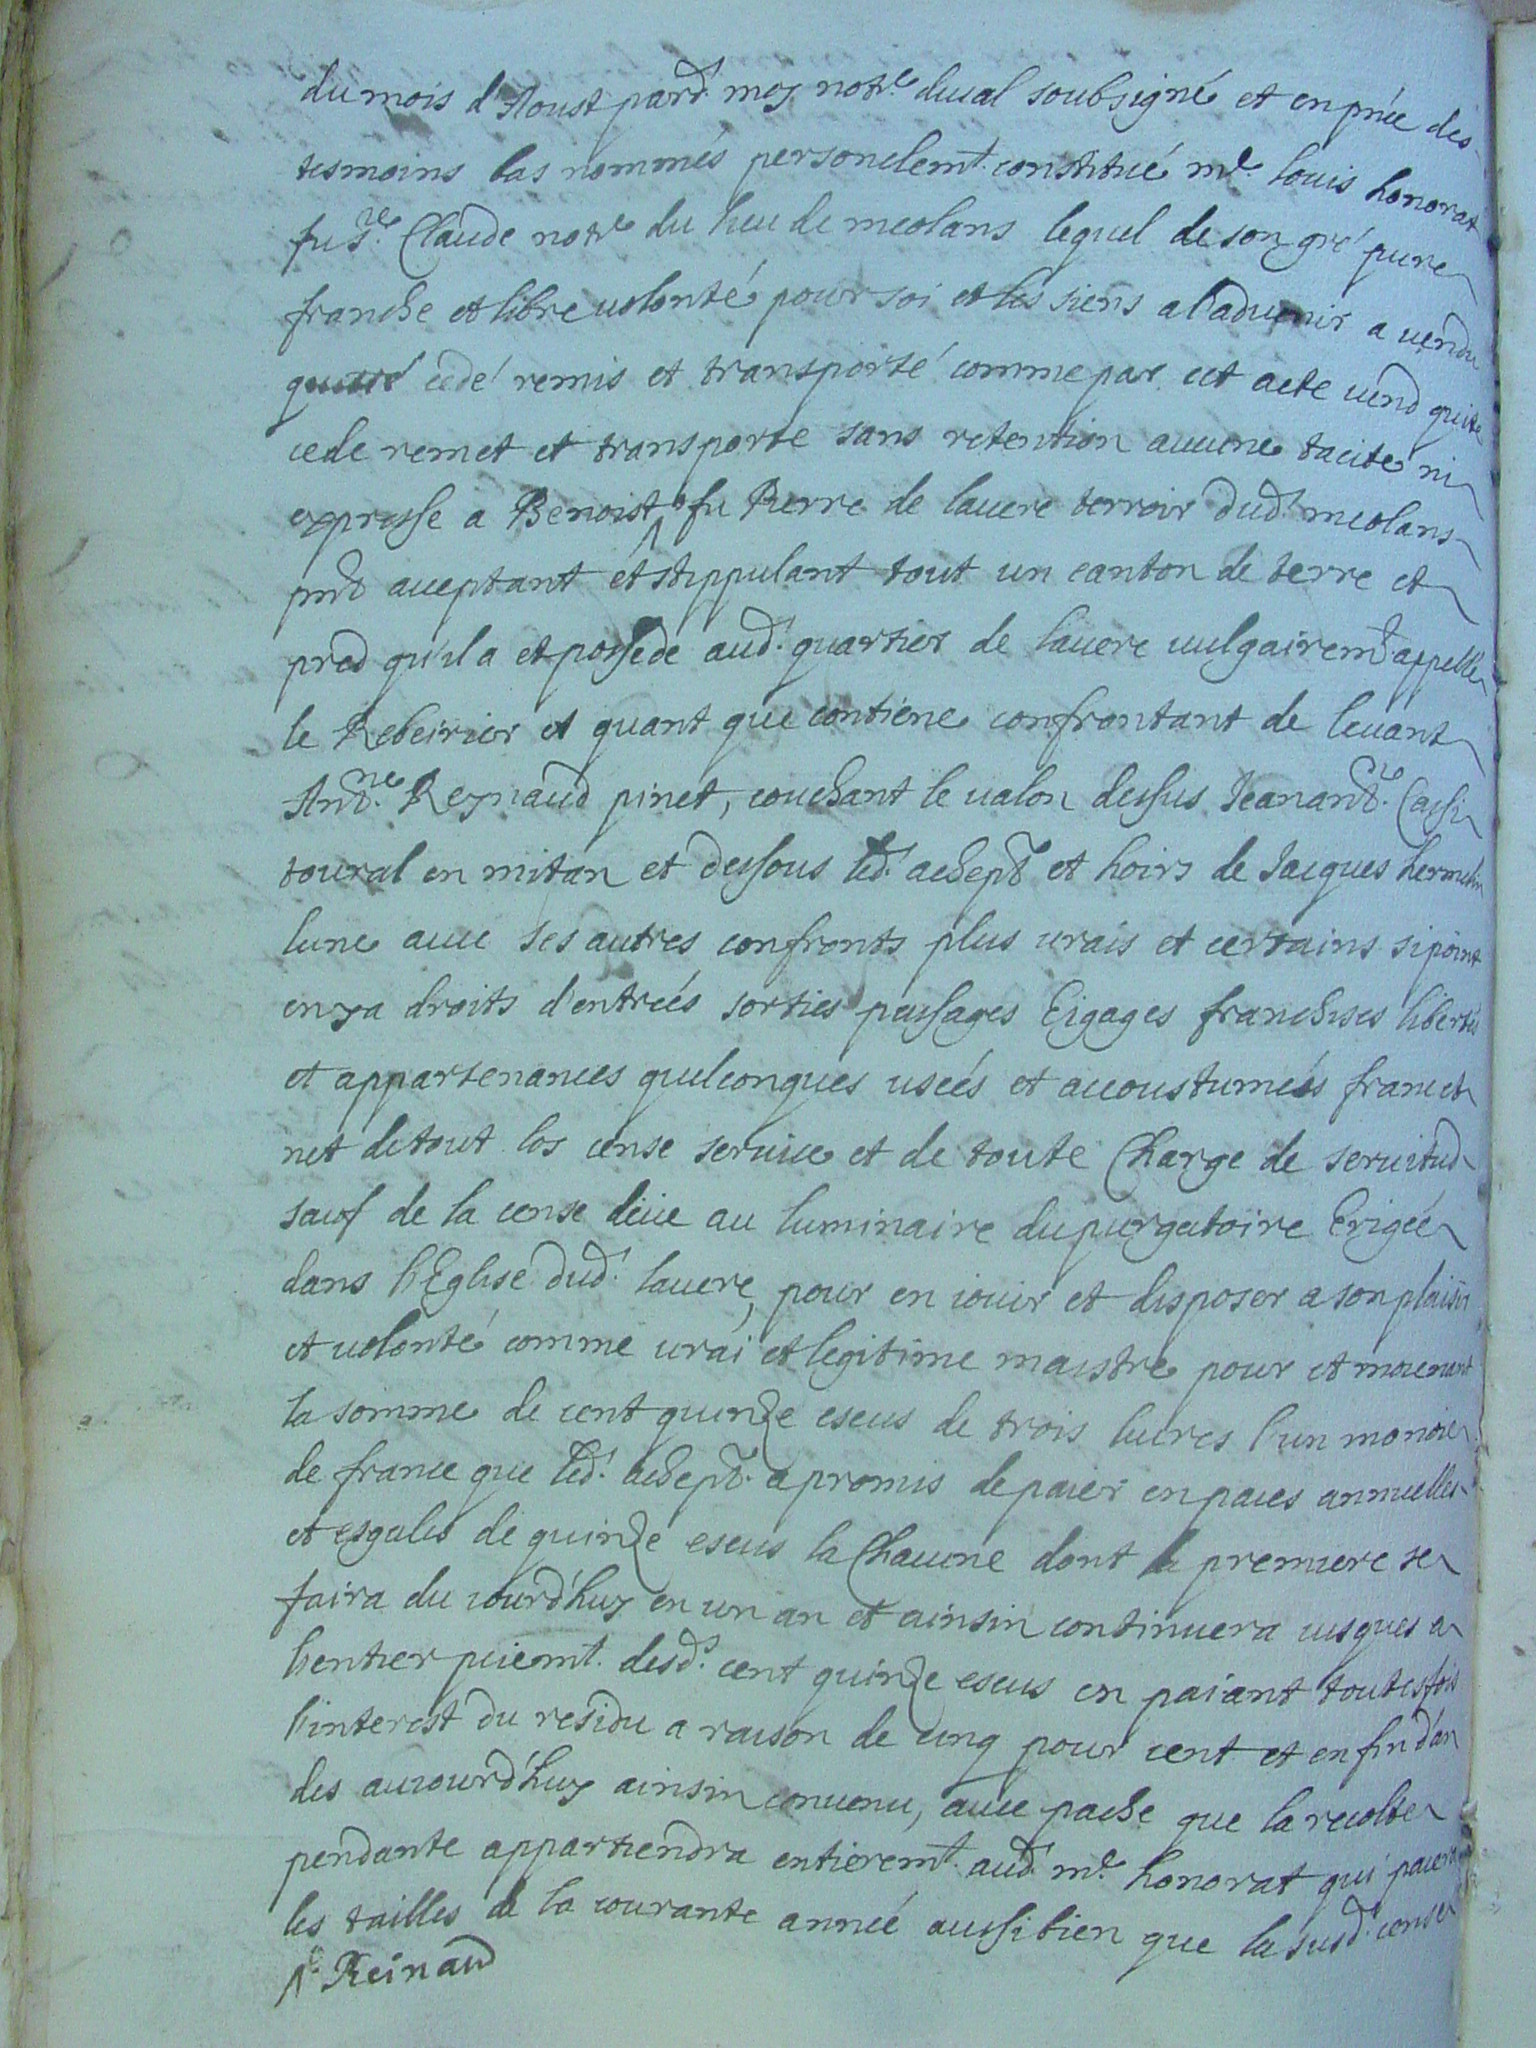 du mois d'Aoust pard.t moy notre ducal soubsigné et en pñce des
tesmoins bas nommés personelem.t constitué m.e Louis honorat
fu s.re Claude notre du lieu de meolans lequel de son gré pure
franche et libre volonté pour soi et les siens a l'advenir a vendu
quitté cedé remis et transporté comme par cet acte vend quite
cede remet et transporte sans retention aucune tacite ni
expresse a Benoist ^ fu Pierre de lauere terroir dud.t meolans
pñt aceptant et stippulant tout un canton de terre et
pred qu'il a et possede aud.t quartier de lauere vulgairem.t appellé
le Rebeirier et quant que contiene confrontant de levant
Ant.ne Reynaud pinet, couchant le valon dessus Jeanant.ne Cassi
toural en mitan et dessous led.t achept.r et hoirs de Jacques hermelin
lune avec ses autres confronts plus vrais et certains si point
en ya droits d'entrées sorties passages Eigages franchises libertés
et appartenances quelconques usées et accoustumées franc et
net de tout los cense service et de toute Charge de servitud
sauf de la cense deüe au luminaire du purgatoire Erigée
dans l'Eglise dud.t lauere, pour en iouir et disposer a son plaisir
et volonté comme vrai et legitime maistre pour et moienant
la somme de cent quinze escus de trois livres l'un monoie
de france que led.t achept.r a promis de paier en paies annuelles
et esgales de quinze escus la Chacune dont la premiere se
faira du iourd'huy en un an et ainsin continuera iusques a
l'entier paiem.t desd.s cent quinze escus en paiant toutesfois
l'interest du residu a raison de cinq pour cent et en fin d'an
des auiourd'huy ainsin convenu, avec pache que la recolte
pendante appartiendra entierem.t aud.t m.e honorat qui paiera
les tailles de la courante année aussi bien que la susd.te cense
^ Reinaud